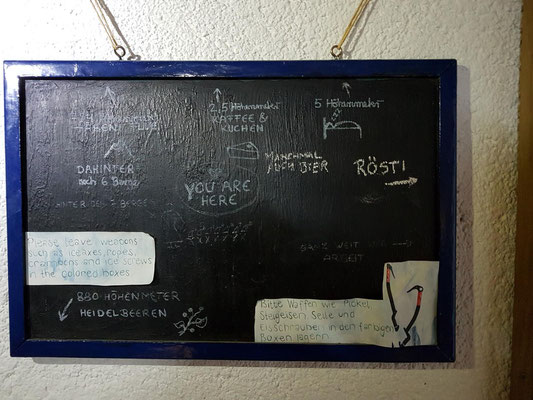 2,5 Höhenmeter
KAFFEE &
KUCHEN
5 Höhenmeter
DAHINTER
noch 6 Berge
MANCHMAL
AUCH BIER
RÖSTI
YOU ARE
HERE
HINTER DEN 7 BERGEN
GANZ WEIT
ARBEIT
Please leave weapons
such as iceaxes, ropes,
crampons and ice screws
in the colored boxes
880 HÖHENMETER
HEIDELBEEREN
Bitte Waffen wie Pickel,
Steigeisen, Seile und
Eisschrauben in den farbigen
Boxen lagern